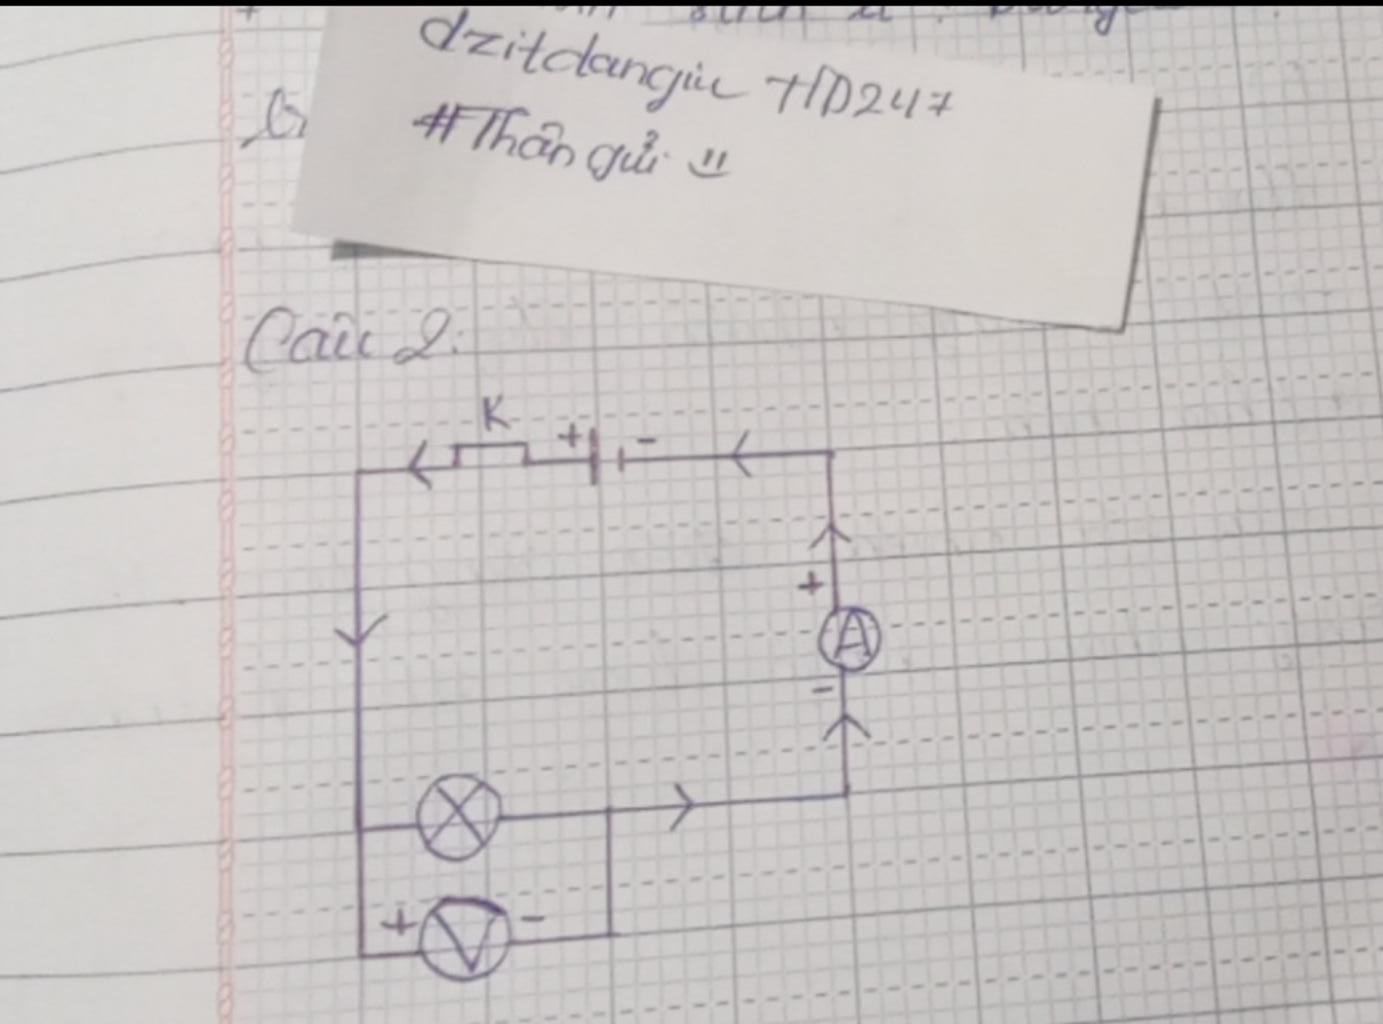 dzitdangiu HD247
#Thân gửi
Câu 2:
K
+ -
+
A
-
+ V -